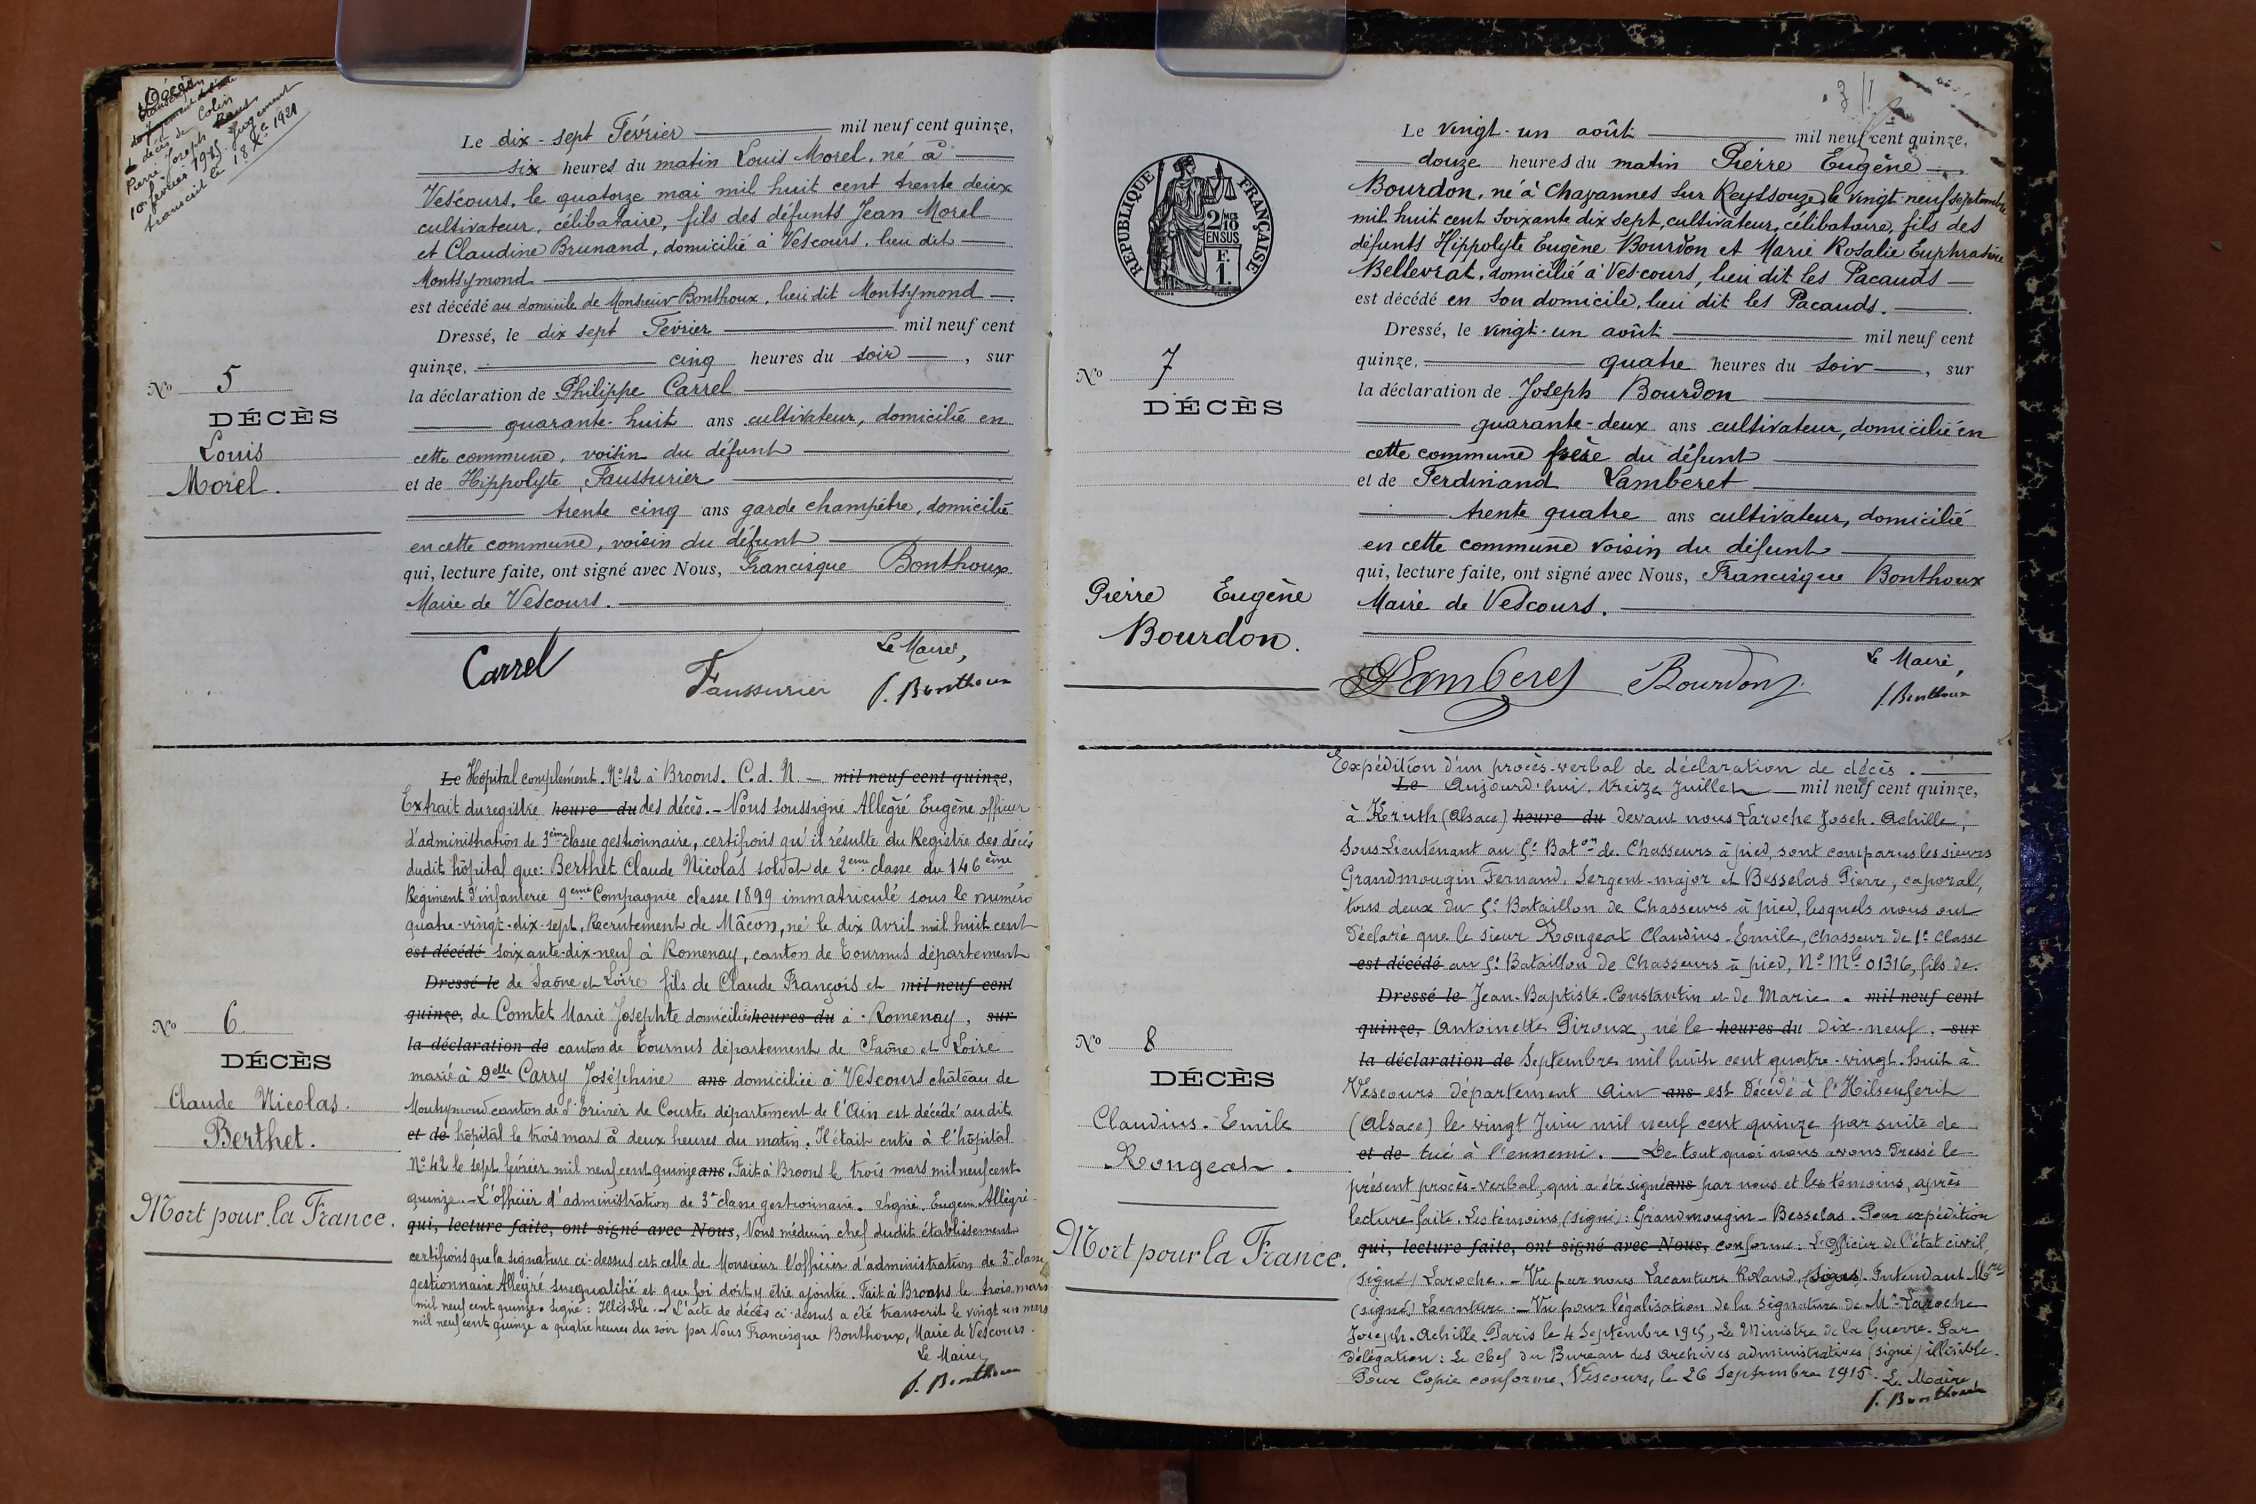 Décès
de décès de Colin
Pierre Joseph
10 février 1915. Jugement
transcrit le 18 Xe 1921
Le dix-sept Février mil neuf cent quinze,
six heures du matin Louis Morel, né à
Vescours, le quatorze mai mil huit cent trente deux
cultivateur, célibataire, fils des défunts Jean Morel
et Claudine Brunand, domicilié à Vescours, lieu dit
Montsymond
est décédé au domicile de Monsieur Bonthoux, lieu dit Montsymond.
Dressé, le dix sept Février mil neuf cent
quinze, cinq heures du soir, sur
la déclaration de Philippe Carrel
quarante-huit ans cultivateur, domicilié en
cette commune, voisin du défunt
et de Hippolyte Faussurier
trente cinq ans garde champêtre, domicilié
en cette commune, voisin du défunt
qui, lecture faite, ont signé avec Nous, Francisque Bonthoux
Maire de Vescours.
Le Maire,
Carrel Faussurier f. Bonthoux
No 5
DÉCÈS
Louis
Morel.
Le Hôpital complément. No 42 à Broons. C.d.N. — mil neuf cent quinze,
Extrait du registre heure du des décès. — Nous soussigné Allégré Eugène officier
d'administration de 3ème classe gestionnaire, certifions qu'il résulte du Registre des décès
dudit hôpital que: Berthet Claude Nicolas soldat de 2ème classe du 146ème
Régiment d'infanterie 9ème Compagnie classe 1899 immatriculé sous le numéro
quatre-vingt-dix-sept, Recrutement de Mâcon, né le dix Avril mil huit cent
est décédé soixante-dix-neuf à Romenay, canton de Tournus département
Dressé le de Saône et Loire fils de Claude François et mil neuf cent
quinze, de Comtet Marie Josephte domiciliés heures du à Romenay, sur
la déclaration de canton de Tournus département de Saône et Loire
marié à Delle Carry Joséphine ans domiciliée à Vescours château de
Montsymond canton de St Trivier de Courtes département de l'Ain est décédé audit
et de hôpital le trois mars à deux heures du matin. Il était entré à l'hôpital
No 42 le sept février mil neuf cent quinze ans. Fait à Broons le trois mars mil neuf cent
quinze. — L'officier d'administration de 3e classe gestionnaire. Signé. Eugène Allégré
qui, lecture faite, ont signé avec Nous, Nous médecin chef dudit établissement
certifions que la signature ci-dessus est celle de Monsieur l'officier d'administration de 3e classe
gestionnaire Allégré susqualifié et que foi doit y être ajoutée. Fait à Broons le trois mars
mil neuf cent quinze. Signé: Illisible. — L'acte de décès ci-dessus a été transcrit le vingt un mars
mil neuf cent quinze à quatre heures du soir par Nous Francisque Bonthoux, Maire de Vescours.
Le Maire,
f. Bonthoux
No 6
DÉCÈS
Claude Nicolas.
Berthet.
Mort pour la France.
Le vingt-un août mil neuf cent quinze,
douze heures du matin Pierre Eugène
Bourdon, né à Chavannes sur Reyssouze, le vingt-neuf septembre
mil huit cent soixante dix sept, cultivateur, célibataire, fils des
défunts Hippolyte Eugène Bourdon et Marie Rosalie Euphrasine
Bellevrat, domicilié à Vescours, lieu dit les Pacauds
est décédé en son domicile, lieu dit les Pacauds.
Dressé, le vingt-un août mil neuf cent
quinze, quatre heures du soir, sur
la déclaration de Joseph Bourdon
quarante-deux ans cultivateur, domicilié en
cette commune frère du défunt
et de Ferdinand Lamberet
trente quatre ans cultivateur, domicilié
en cette commune voisin du défunt
qui, lecture faite, ont signé avec Nous, Francisque Bonthoux
Maire de Vescours.
Le Maire,
Lamberet Bourdon f. Bonthoux
REPUBLIQUE FRANÇAISE
2/10 EN SUS
F. 1.
No 7
DÉCÈS
Pierre Eugène
Bourdon.
Expédition d'un procès-verbal de déclaration de décès.
Le Aujourd'hui, treize Juillet — mil neuf cent quinze,
à Kruth (Alsace) heure du devant nous Laroche Josch. Achille,
Sous-Lieutenant au 5e Baton de Chasseurs à pied, sont comparus les sieurs
Grandmougin Fernand, Sergent-major et Besselas Pierre, caporal,
tous deux du 5e Bataillon de Chasseurs à pied, lesquels nous ont
déclaré que le sieur Rongeat Claudius-Emile, Chasseur de 1e classe
est décédé au 5e Bataillon de Chasseurs à pied, No Mle 01316, fils de
Dressé le Jean-Baptiste-Constantin et de Marie. mil neuf cent
quinze, Antoinette Piroux, né le heures du dix-neuf. sur
la déclaration de Septembre mil huit cent quatre-vingt-huit à
Vescours département Ain ans est décédé à l'Hilsenferit
(Alsace) le vingt Juin mil neuf cent quinze par suite de
et de tué à l'ennemi. — De tout quoi nous avons dressé le
présent procès-verbal, qui a été signé ans par nous et les témoins, après
lecture faite. Les témoins, (signé): Grandmougin - Besselas. Pour expédition
qui, lecture faite, ont signé avec Nous, conforme: L'officier de l'état civil,
(signé) Laroche. — Vu par nous Lacanture Roland, Intendant Mre
(signé) Lacanture. — Vu pour légalisation de la signature de Mr Laroche
Joseph-Achille. Paris le 4 Septembre 1915, Le Ministre de la Guerre. Par
délégation: Le Chef du Bureau des Archives administratives (signé) illisible.
Pour Copie conforme, Vescours, le 26 Septembre 1915. Le Maire,
f. Bonthoux
No 8
DÉCÈS
Claudius-Emile
Rongeat.
Mort pour la France.